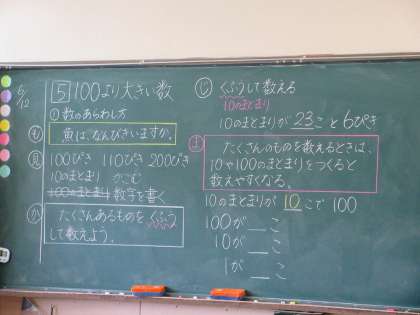 6/12
5 100より大きい数
①数のあらわし方
も 魚は、なんびきいますか。
見 100ぴき 110ぴき 200ぴき
10のまとまり かこむ
100のまとまり 数字を書く
か たくさんあるものをくふう
して数えよう。
じ くふうして数える
10のまとまり
10のまとまりが 23こと6ぴき
ま たくさんのものを数えるときは、
10や100のまとまりをつくると
数えやすくなる。
10のまとまりが 10 こで 100
100が __ こ
10が __ こ
1が __ こ